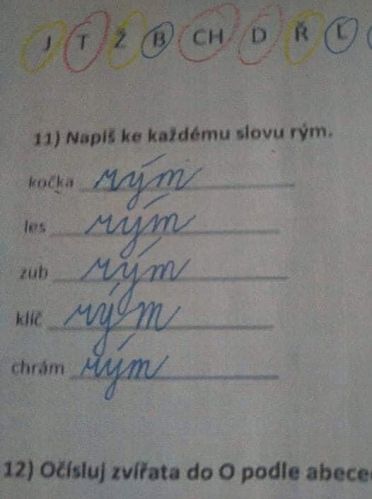 J T Ž B CH D Ř L
11) Napiš ke každému slovu rým.
kočka rým
les rým
zub rým
klíč rým
chrám rým
12) Očísluj zvířata do O podle abece